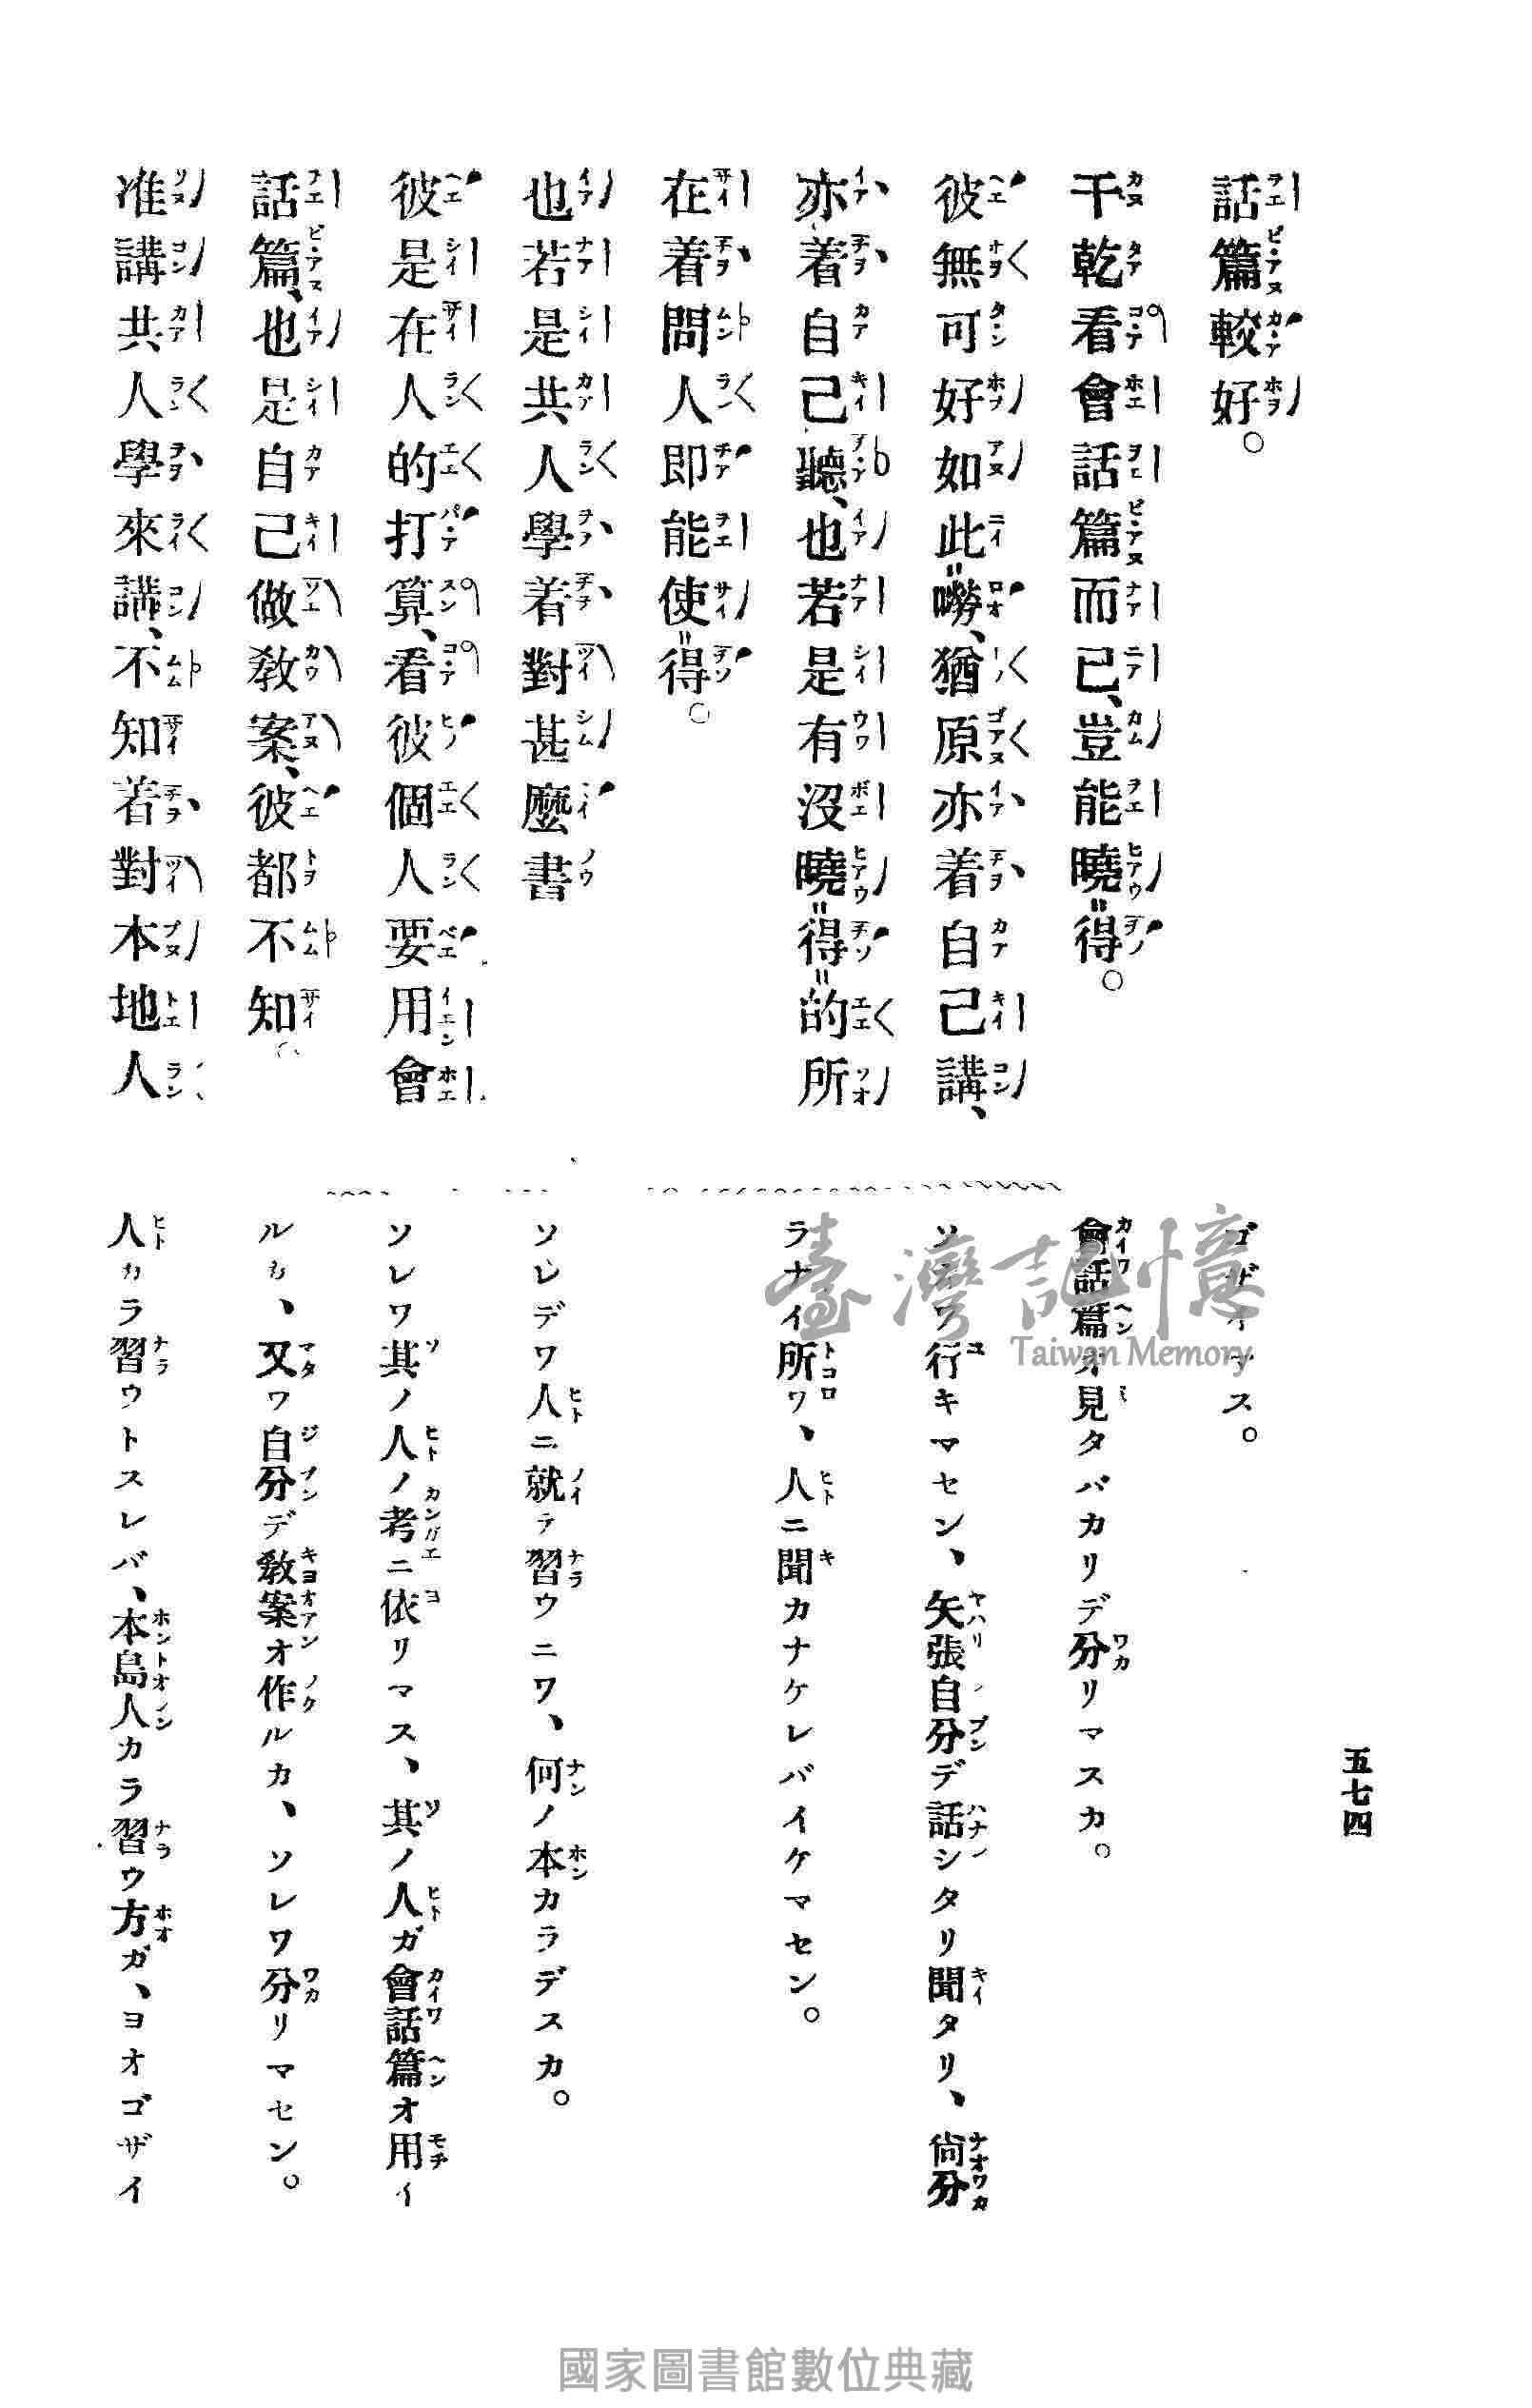 五七四
話篇較好。
干乾看會話篇而已、豈能曉〓得。
彼無可好如此〓嘮、猶原亦着自己講、
亦着自己聽、也若是有沒曉〓得〓的所
在着問人即能使〓得。
也若是共人學着對甚麼書
彼是在人的打算、看彼個人要用會
話篇、也是自己做教案、彼都不知。
准講共人學來講、不知着對本地人
ゴザイマス。
會話篇オ見タバカリデ分リマスカ。
ソオワ行キマセン、矢張自分デ話シタリ聞タリ、尙分
ラナイ所ワ、人ニ聞カナケレバイケマセン。
ソレデワ人ニ就テ習ウニワ、何ノ本カラデスカ。
ソレワ其ノ人ノ考ニ依リマス、其ノ人ガ會話篇オ用イ
ルカ、又ワ自分デ教案オ作ルカ、ソレワ分リマセン。
人カラ習ウトスレバ、本島人カラ習ウ方ガ、ヨオゴザイ
臺灣記憶
Taiwan Memory
國家圖書館數位典藏